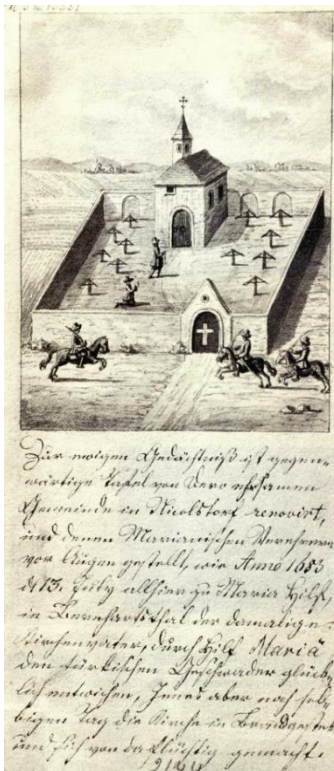 Zur ewigen Gedächtniß ist gegen-
wärtige Tafel von Dero ehrsamen
Gemeinde in Nicolstorf renovirt,
und denen Marianischen Verehrern
vor Augen gestellt, wie Anno 1683
d 13. July allhier zu Maria Hilf
in Bernhartsthal der damalige
Kirchenvater, durch Hilf Mariä
den türkischen Geschwader glück-
lich entwichen, Jenes aber noch sel-
bigen Tag die Kirche in Brand gestekt
und sich von da flüchtig gemacht.